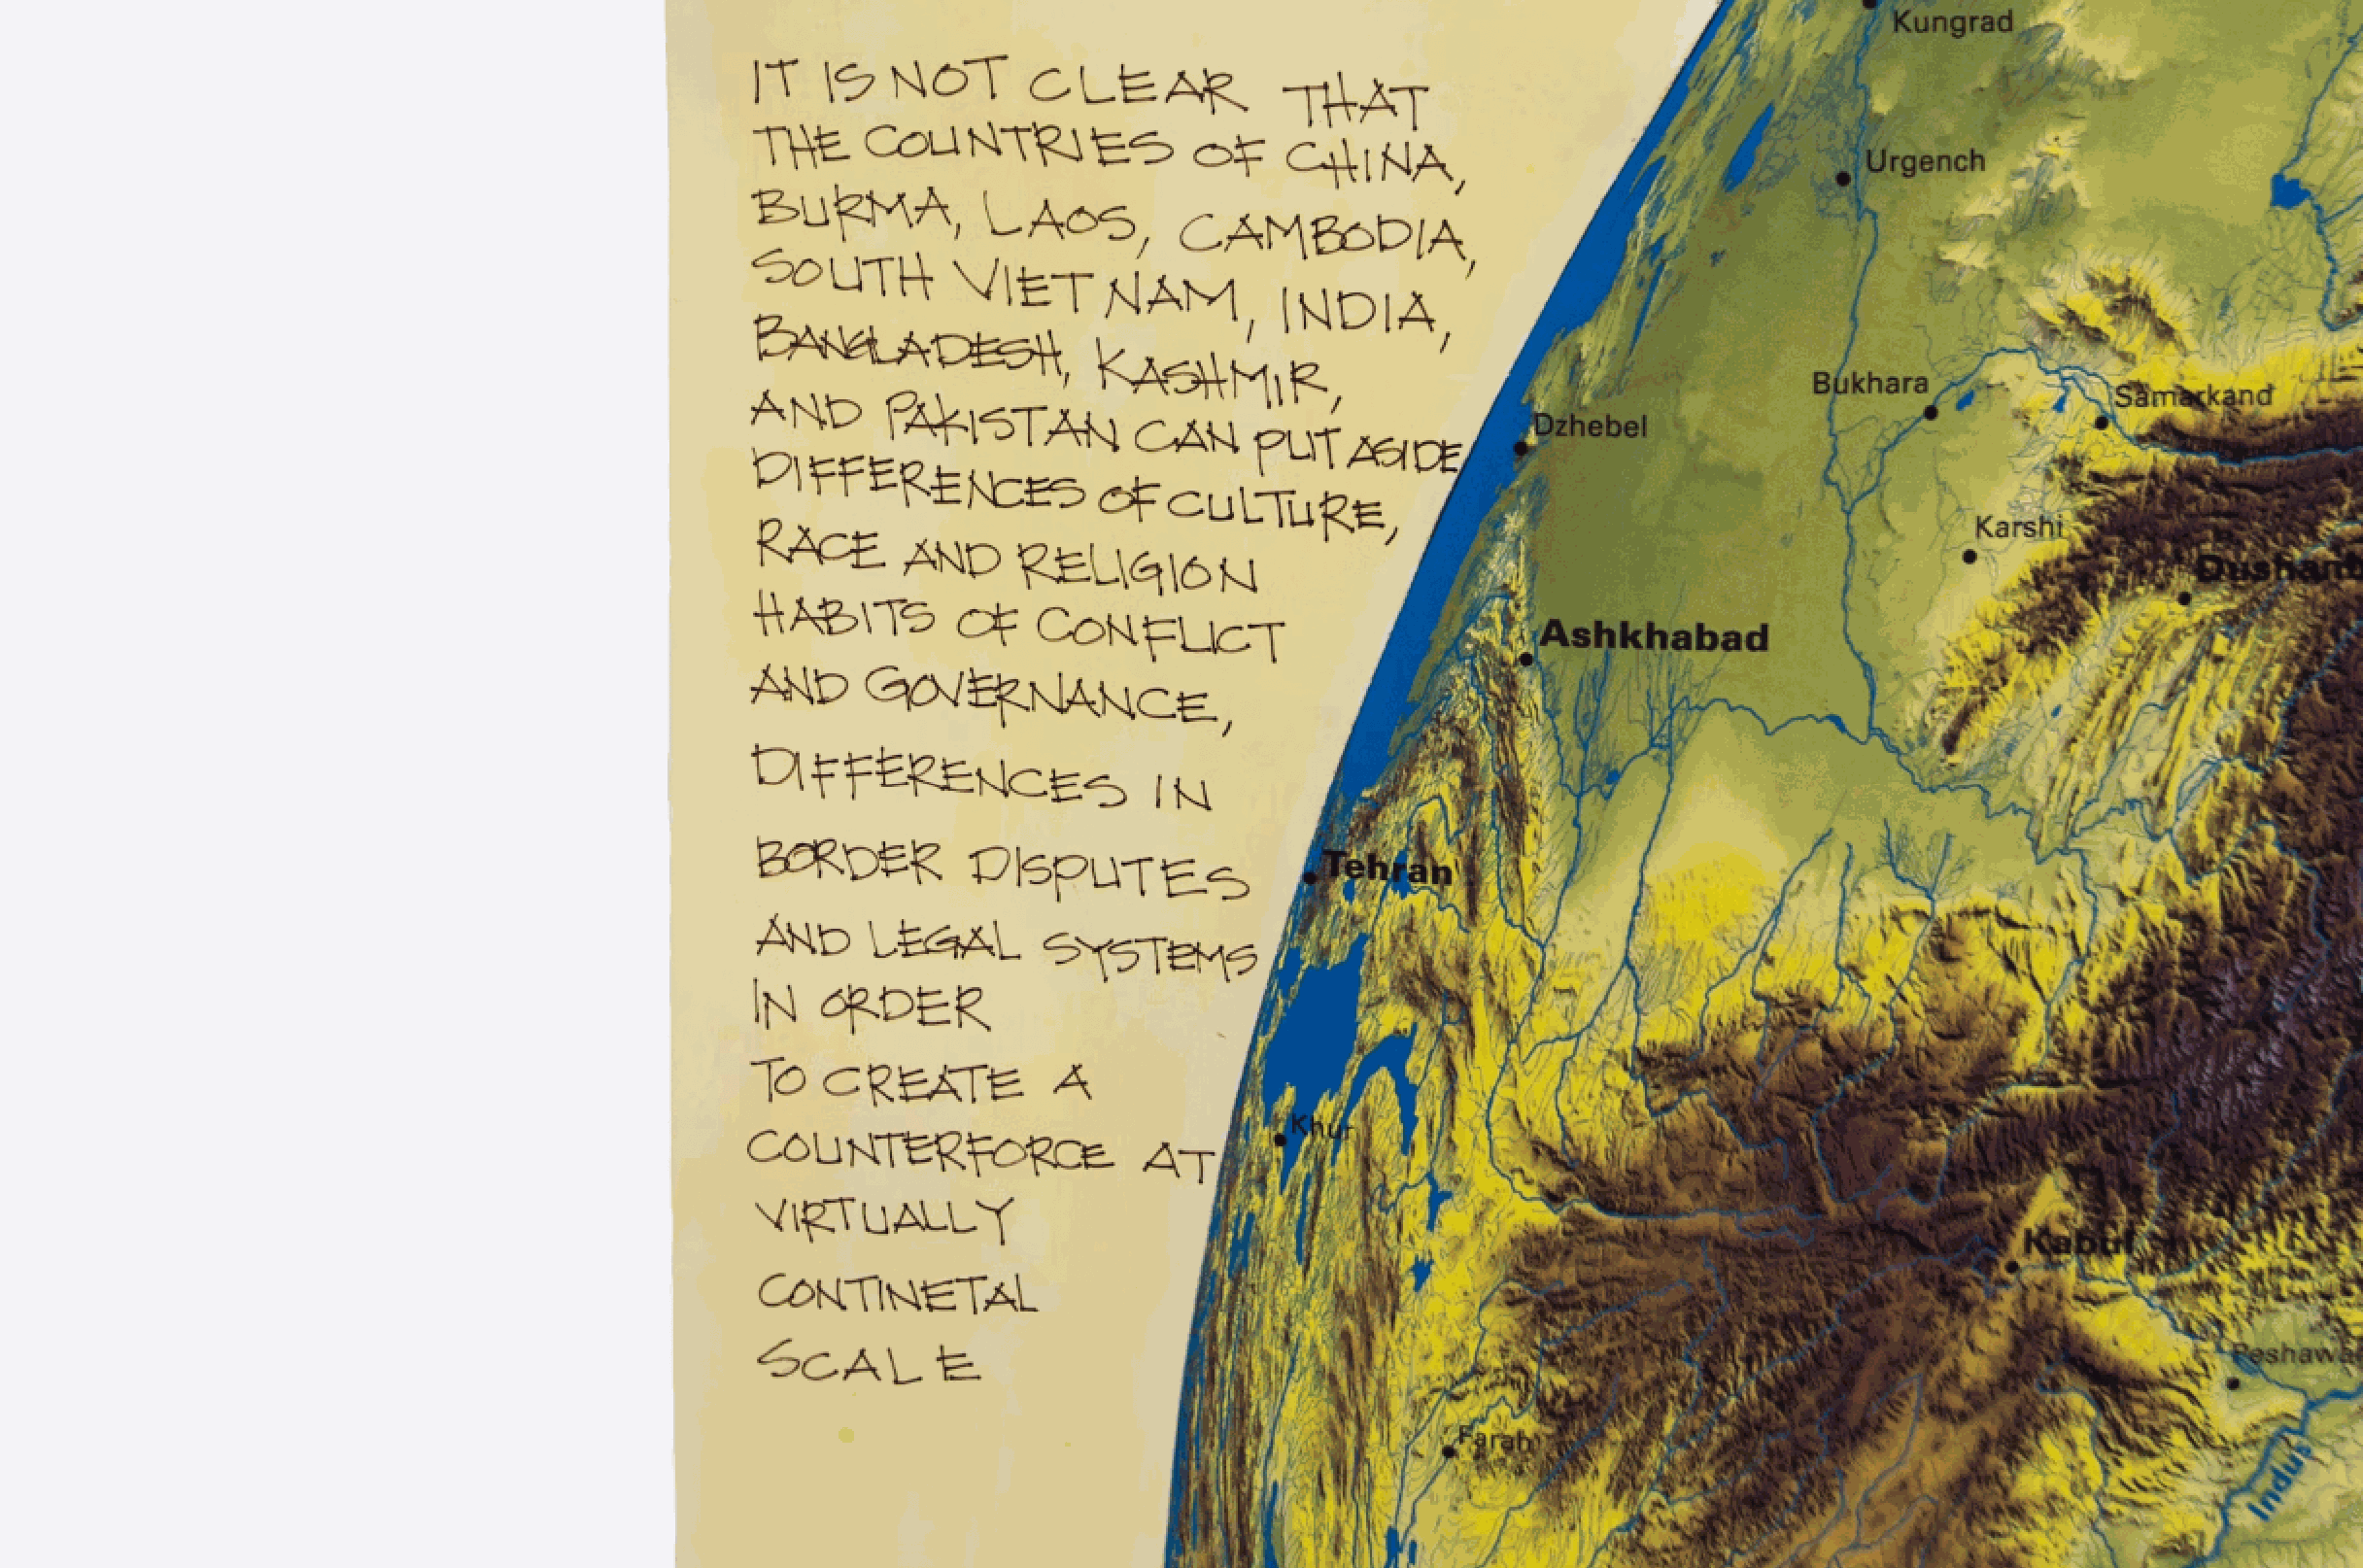 IT IS NOT CLEAR THAT
THE COUNTRIES OF CHINA,
BURMA, LAOS, CAMBODIA,
SOUTH VIET NAM, INDIA,
BANGLADESH, KASHMIR,
AND PAKISTAN CAN PUT ASIDE
DIFFERENCES OF CULTURE,
RACE AND RELIGION
HABITS OF CONFLICT
AND GOVERNANCE,
DIFFERENCES IN
BORDER DISPUTES
AND LEGAL SYSTEMS
IN ORDER
TO CREATE A
COUNTERFORCE AT
VIRTUALLY
CONTINETAL
SCALE
Kungrad
Urgench
Bukhara
Samarkand
Dzhebel
Karshi
Dushanb
Ashkhabad
Tehran
Khur
Kabul
Peshawa
Farah
Indus